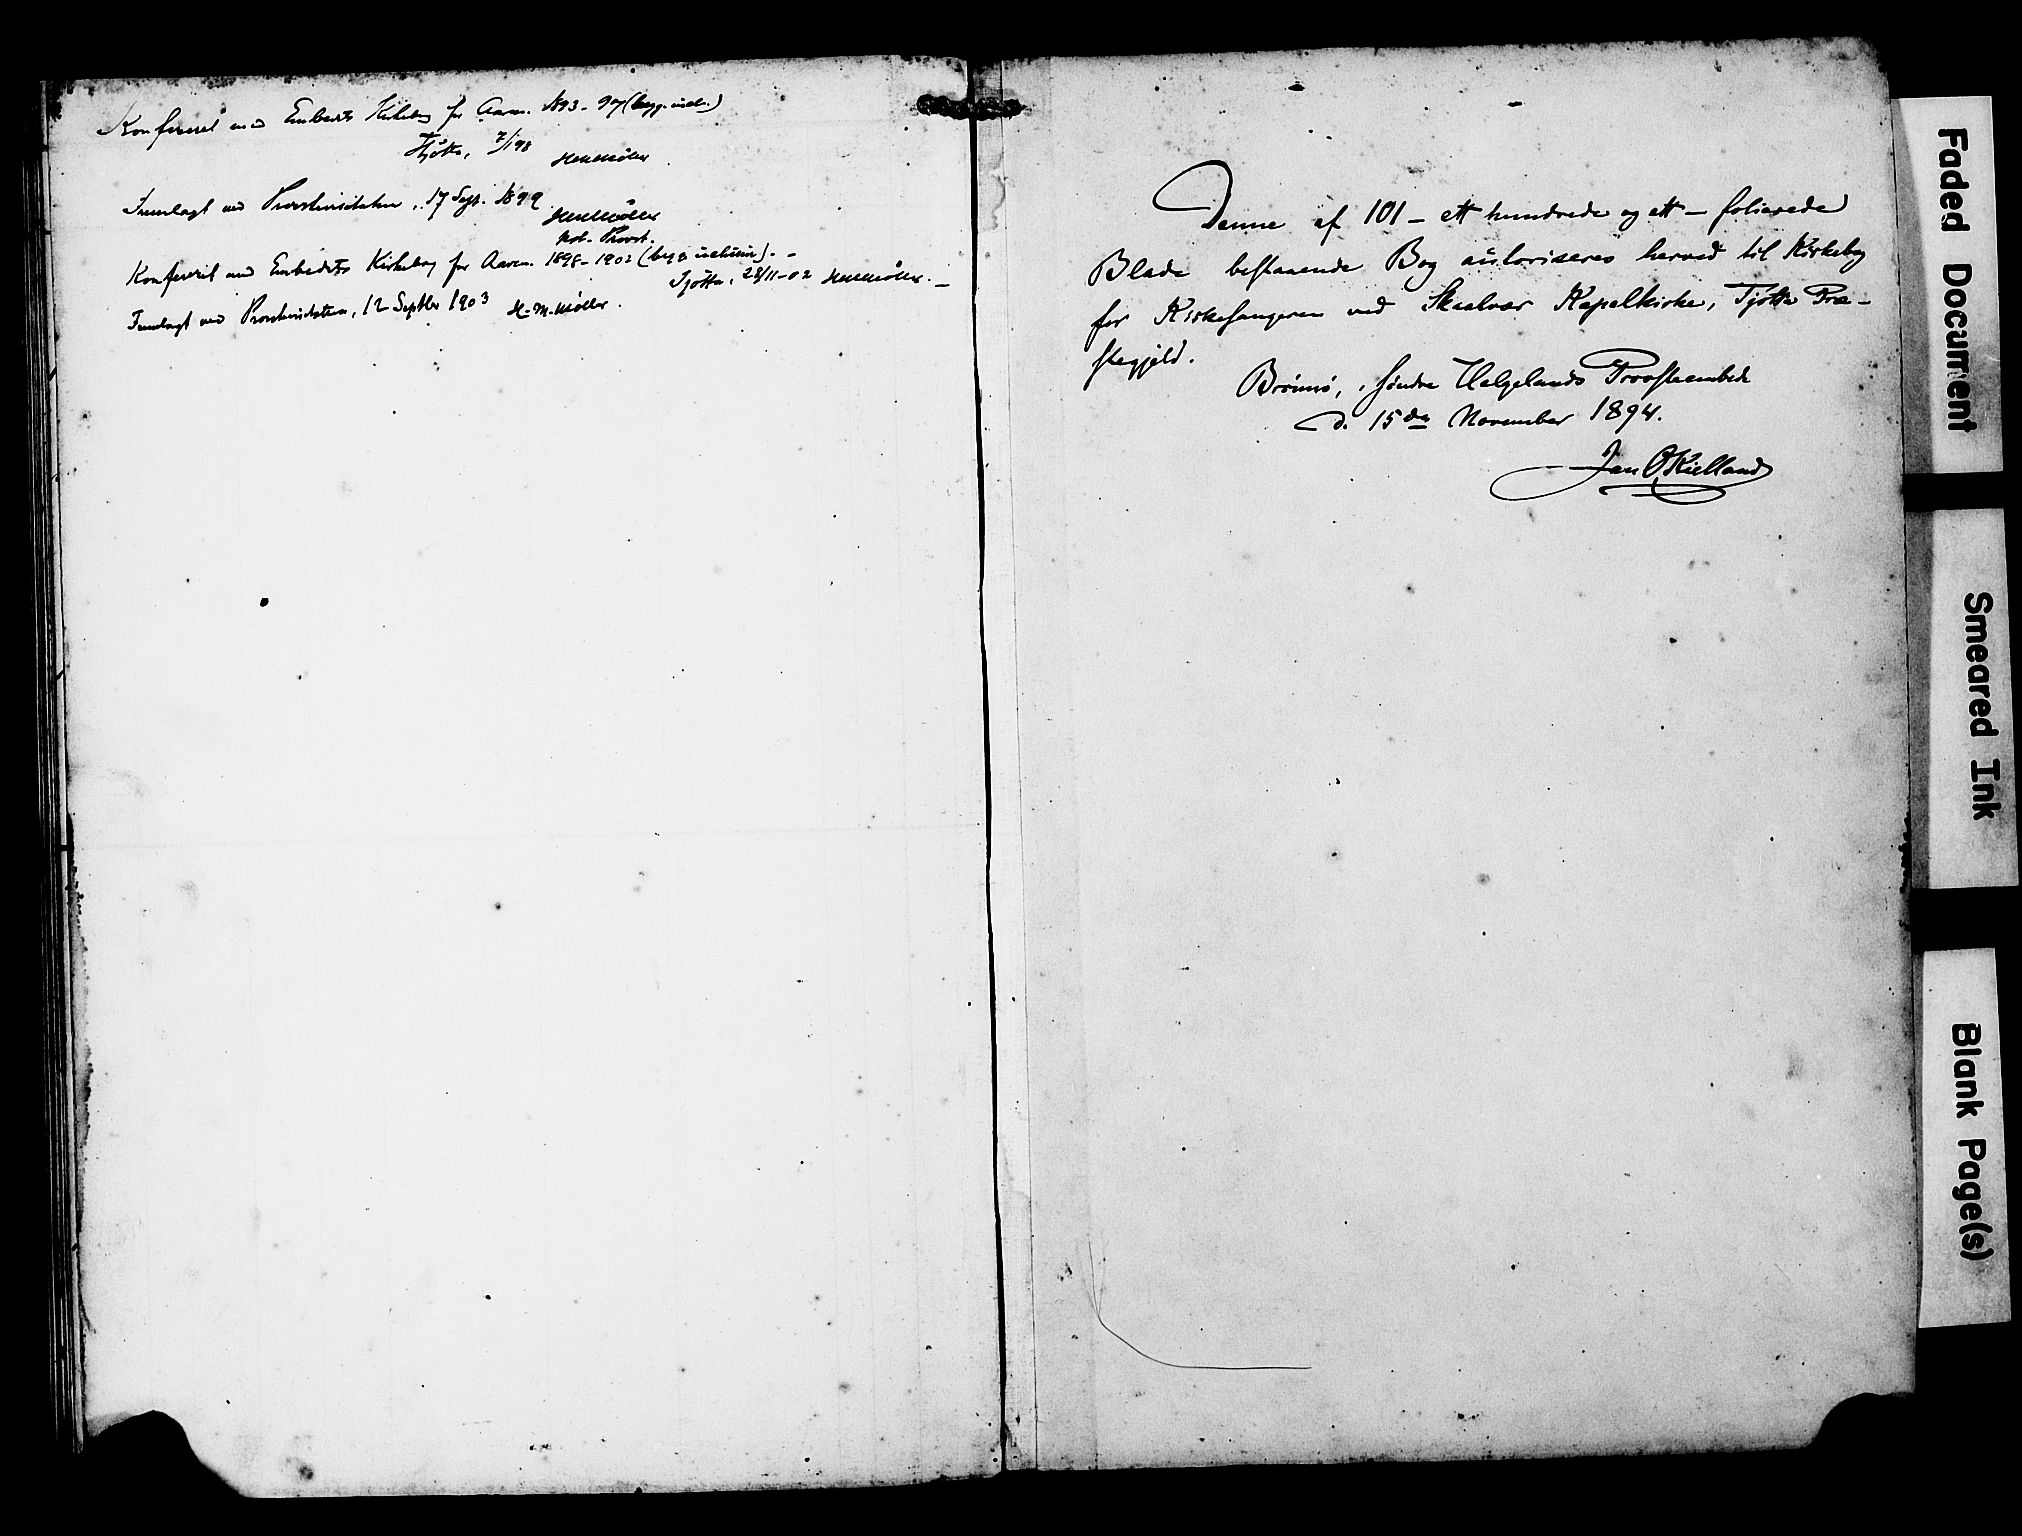 Konfereret med Embedets Kirkebog for Aaren. 1893-97 (begge incl.)
Tjøtta, 7/1 98 HMMøller
Fremlagt ved Provstevisitatsen, 17 Sept. 1899
HMMøller
kst. Provst.
Konfereret med Embedets Kirkebog for Aaren. 1898-1902 (begge inclusive). -
Tjøtta, 28/11-02 HMMøller. -
Fremlagt ved Provstevisitatsen, 12 Septbr 1903 H. M. Møller.
Denne af 101 - ett hundrede og ett - folierede
Blade bestaaende Bog autoriseres herved til Kirkebog
for Kirkesangeren ved Skaalvær Kapelkirke, Tjøtta Præ-
stegjeld.
Brønnø, Søndre Helgelands Provsteembede
d. 15de November 1894.
Jan O Kielland
Faded Document
Smeared Ink
Blank Page(s)